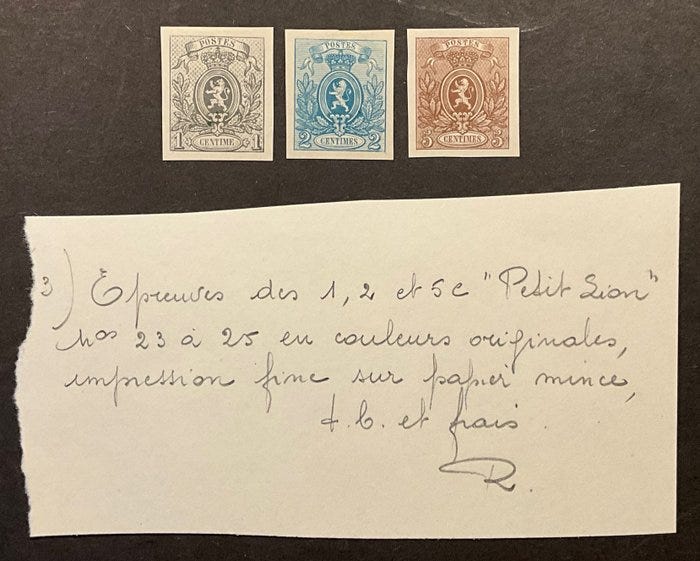 POSTES
1 CENTIME 1
POSTES
2 CENTIMES 2
POSTES
5 CENTIMES 5
3) Epreuves des 1, 2 et 5c "Petit Lion"
nos 23 à 25 en couleurs originales,
impression fine sur papier mince,
t.b. et frais
R.